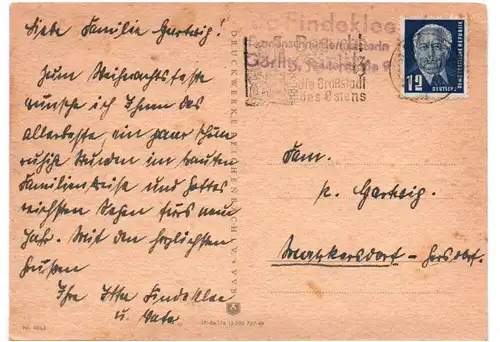 Liebe Familie Gartwig!
Zum Weihnachtsfeste
wünsche ich Ihnen das
allerbeste, ein paar schöne
ruhige Stunden im trauten
Familienkreise und Gottes
reichsten Segen fürs neue
Jahr. Mit den herzlichsten
Grüßen
Ihre Itta Findeklee
u. Vater
Nr. 4063
DRUCKWERKE REICHENBACH V. VVB
Findeklee
Görlitz
die Großstadt
des Ostens
12
DEUTSCHE
DEMOKRATISCHE REPUBLIK
Fam.
p. Gartwig.
Markersdorf - Gersdorf.